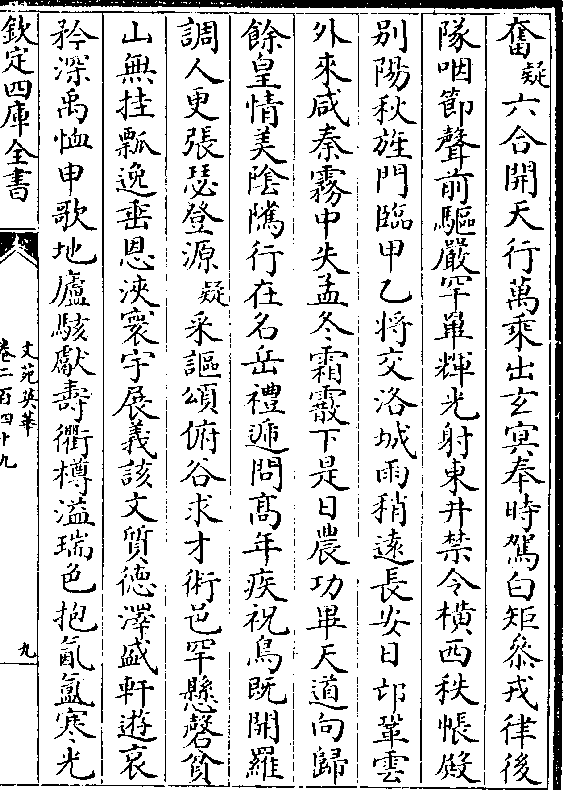 奮疑六合開天行萬乘出玄冥奉時駕白矩叅戎律後
隊咽節聲前驅嚴罕蹕輝光射東井禁令横西秩帳殿
别陽秋旌門臨甲乙將交洛城雨稍遠長安日邙鞏雲
外來咸秦霧中失孟冬霜霰下是日農功畢天道向歸
餘皇情美陰隲行在名岳禮遞問髙年疾祝鳥既開羅
調人更張瑟登源疑采謳頌俯谷求才術邑罕懸磬貧
山無挂瓢逸垂恩浹寰宇展義該文質德澤盛軒遊哀
矜深禹恤申歌地廬駭獻壽衢樽溢瑞色抱氤氲寒光
欽定四庫全書
文苑英華
卷二百四十九
九